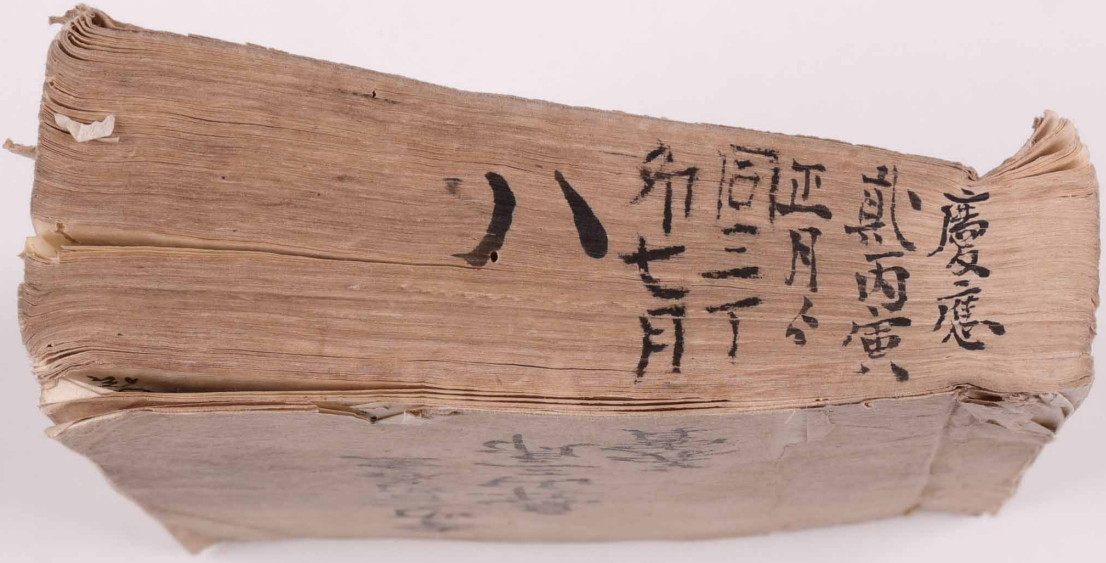 慶應
貳丙寅
正月ゟ
同三丁
卯七月
八